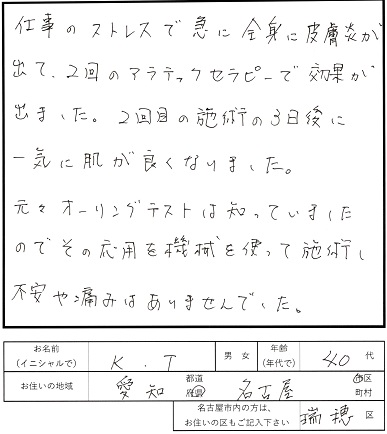 仕事のストレスで急に全身に皮膚炎が
出て、2回のアラテックセラピーで効果が
出ました。2回目の施術の3日後に
一気に肌が良くなりました。
元々オーリングテストは知っていました
のでその応用を機械を使って施術し
不安や痛みはありませんでした。
お名前(イニシャルで) K.T 男 女 年齢(年代で) 40代
お住いの地域 愛知 都道府県 名古屋 市区町村
名古屋市内の方は、お住いの区もご記入下さい 瑞穂 区